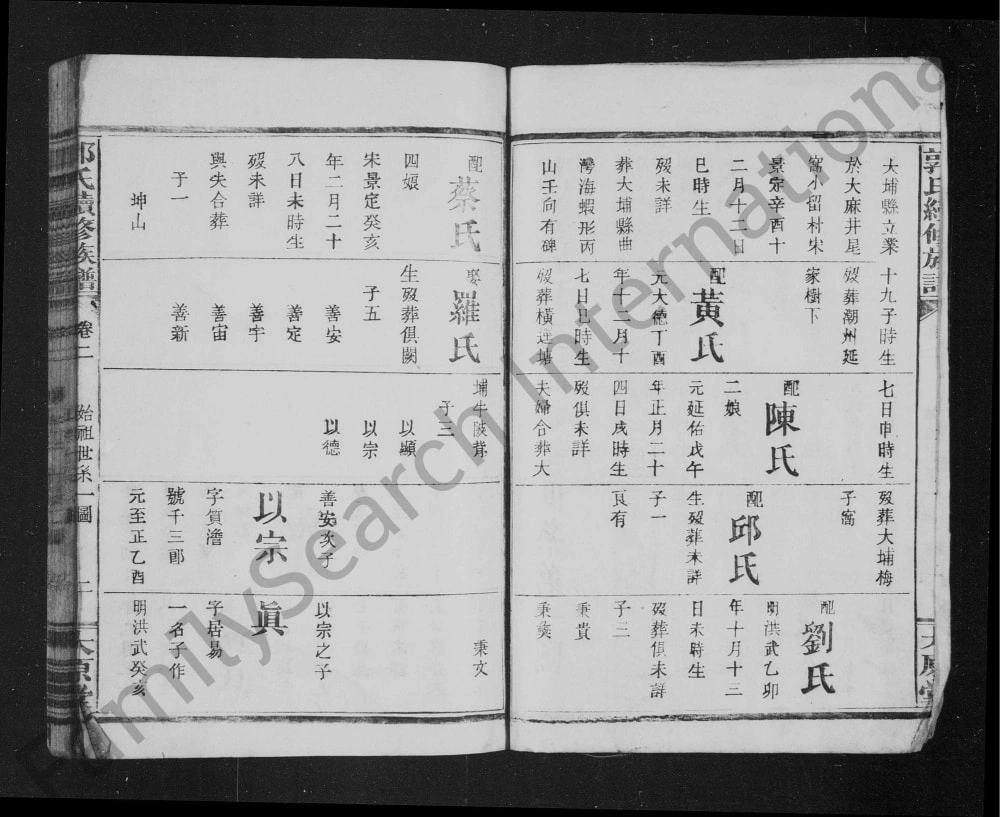 郭氏續修族譜
大埔縣立業
於大麻井星
窩小留村宋
景定辛酉十
二月十二日
巳時生
歿未詳
葬大埔縣曲
灣海蝦形丙
山壬向有碑
十九子時生
歿葬潮州延
家樹下
配
黃氏
元大德丁酉
年十二月十
七日巳時生
歿葬橫逕塘
七日申時生
配
陳氏
二娘
元延佑戊午
年正月二十
四日戌時生
歿俱未詳
夫婦合葬大
歿葬大埔梅
子窩
配
邱氏
生歿葬未詳
子一
艮有
配
劉氏
明洪武乙卯
年十月十三
日未時生
歿葬俱未詳
子三
秉貴
秉彝
太原堂
配
蔡氏
四娘
宋景定癸亥
年二月二十
八日未時生
歿未詳
與失合葬
子一
坤山
娶
羅氏
生歿葬俱闕
子五
善安
善定
善宇
善宙
善新
埔牛陂背
子三
以顯
以宗
以德
善安次子
以宗
字質澹
號千三郎
元至正乙酉
秉文
以宗之子
眞
字居易
一名子作
明洪武癸亥
郭氏續修族譜
卷二
始祖世系一圖
太原堂
FamilySearch International